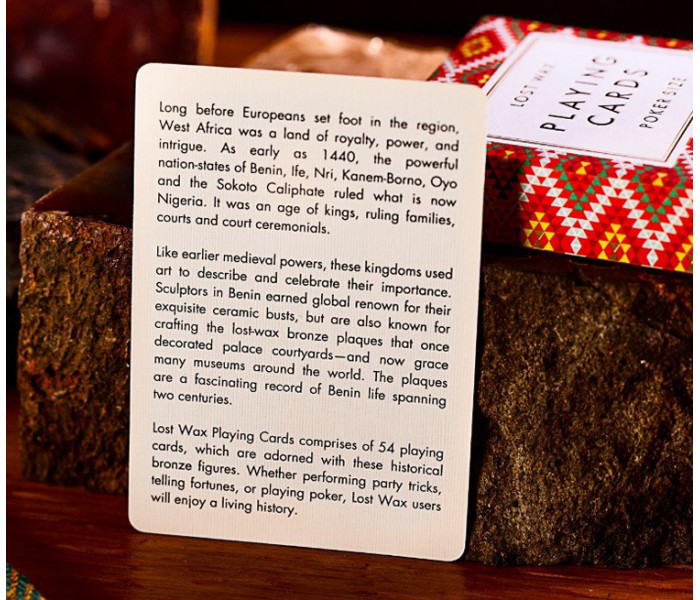 Long before Europeans set foot in the region,
West Africa was a land of royalty, power, and
intrigue. As early as 1440, the powerful
nation-states of Benin, Ife, Nri, Kanem-Borno, Oyo
and the Sokoto Caliphate ruled what is now
Nigeria. It was an age of kings, ruling families,
courts and court ceremonials.
Like earlier medieval powers, these kingdoms used
art to describe and celebrate their importance.
Sculptors in Benin earned global renown for their
exquisite ceramic busts, but are also known for
crafting the lost-wax bronze plaques that once
decorated palace courtyards—and now grace
many museums around the world. The plaques
are a fascinating record of Benin life spanning
two centuries.
Lost Wax Playing Cards comprises of 54 playing
cards, which are adorned with these historical
bronze figures. Whether performing party tricks,
telling fortunes, or playing poker, Lost Wax users
will enjoy a living history.
LOST WAX
PLAYING
CARDS
POKER SIZE